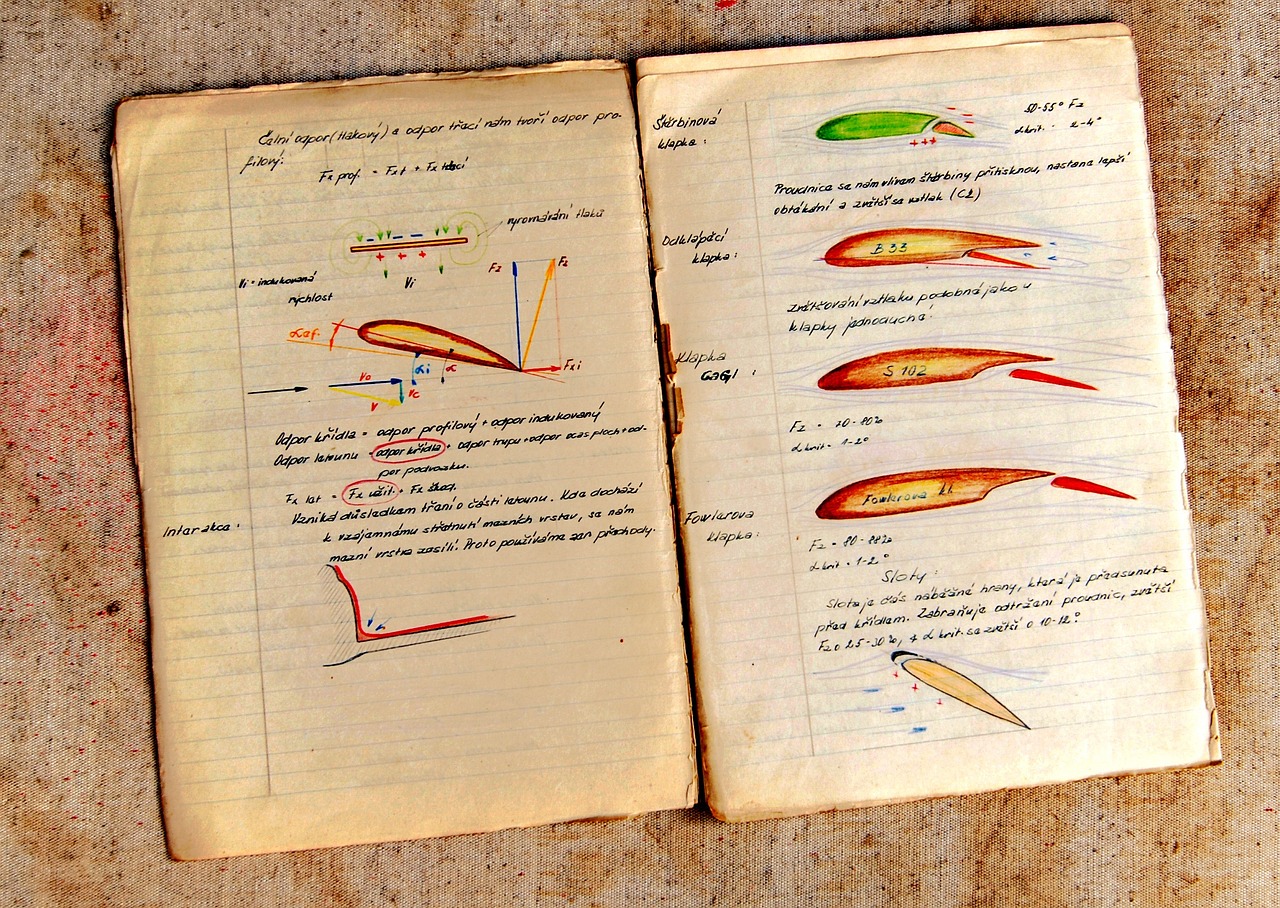 Čelní odpor (tlakový) a odpor třecí nám tvoří odpor pro-
filový:
Fx prof. = Fxt + Fx třecí
vyrovnávání tlaků
Vi = indukovaná
rychlost
Vi
Fz
Fz
αef.
αi
α
Fxi
Vo
Vc
V
Odpor křídla = odpor profilový + odpor indukovaný
Odpor letounu = odpor křídla + odpor trupu + odpor ocas ploch + od-
por podvozku.
Fx let = Fx užit. + Fx škod.
Interakce:
Vzniká důsledkem tření o části letounu. Kde dochází
k vzájemnému střetnutí mezních vrstev, se nám
mezní vrstva zesílí. Proto používáme zan přechody.
Štěrbinová
klapka:
50-55° Fz
αkrit. 2-4°
Proudnice se nám vlivem štěrbiny přitisknou, nastane lepší
obtékání a zvětší se vztlak (Cz)
Odklápěcí
klapka:
B 33
zvětšování vztlaku podobné jako u
klapky jednoduché.
Klapka
GaGl:
S 102
Fz = 70-80%
αkrit = 1-2°
Fowlerova
klapka:
Fowlerova kl.
Fz = 80-88%
αkrit = 1-2°
Sloty:
Slot je část náběžné hrany, která je předsunuta
před křídlem. Zabraňuje odtržení proudnic, zvětší
Fz o 25-30%, a αkrit. se zvětší o 10-12°